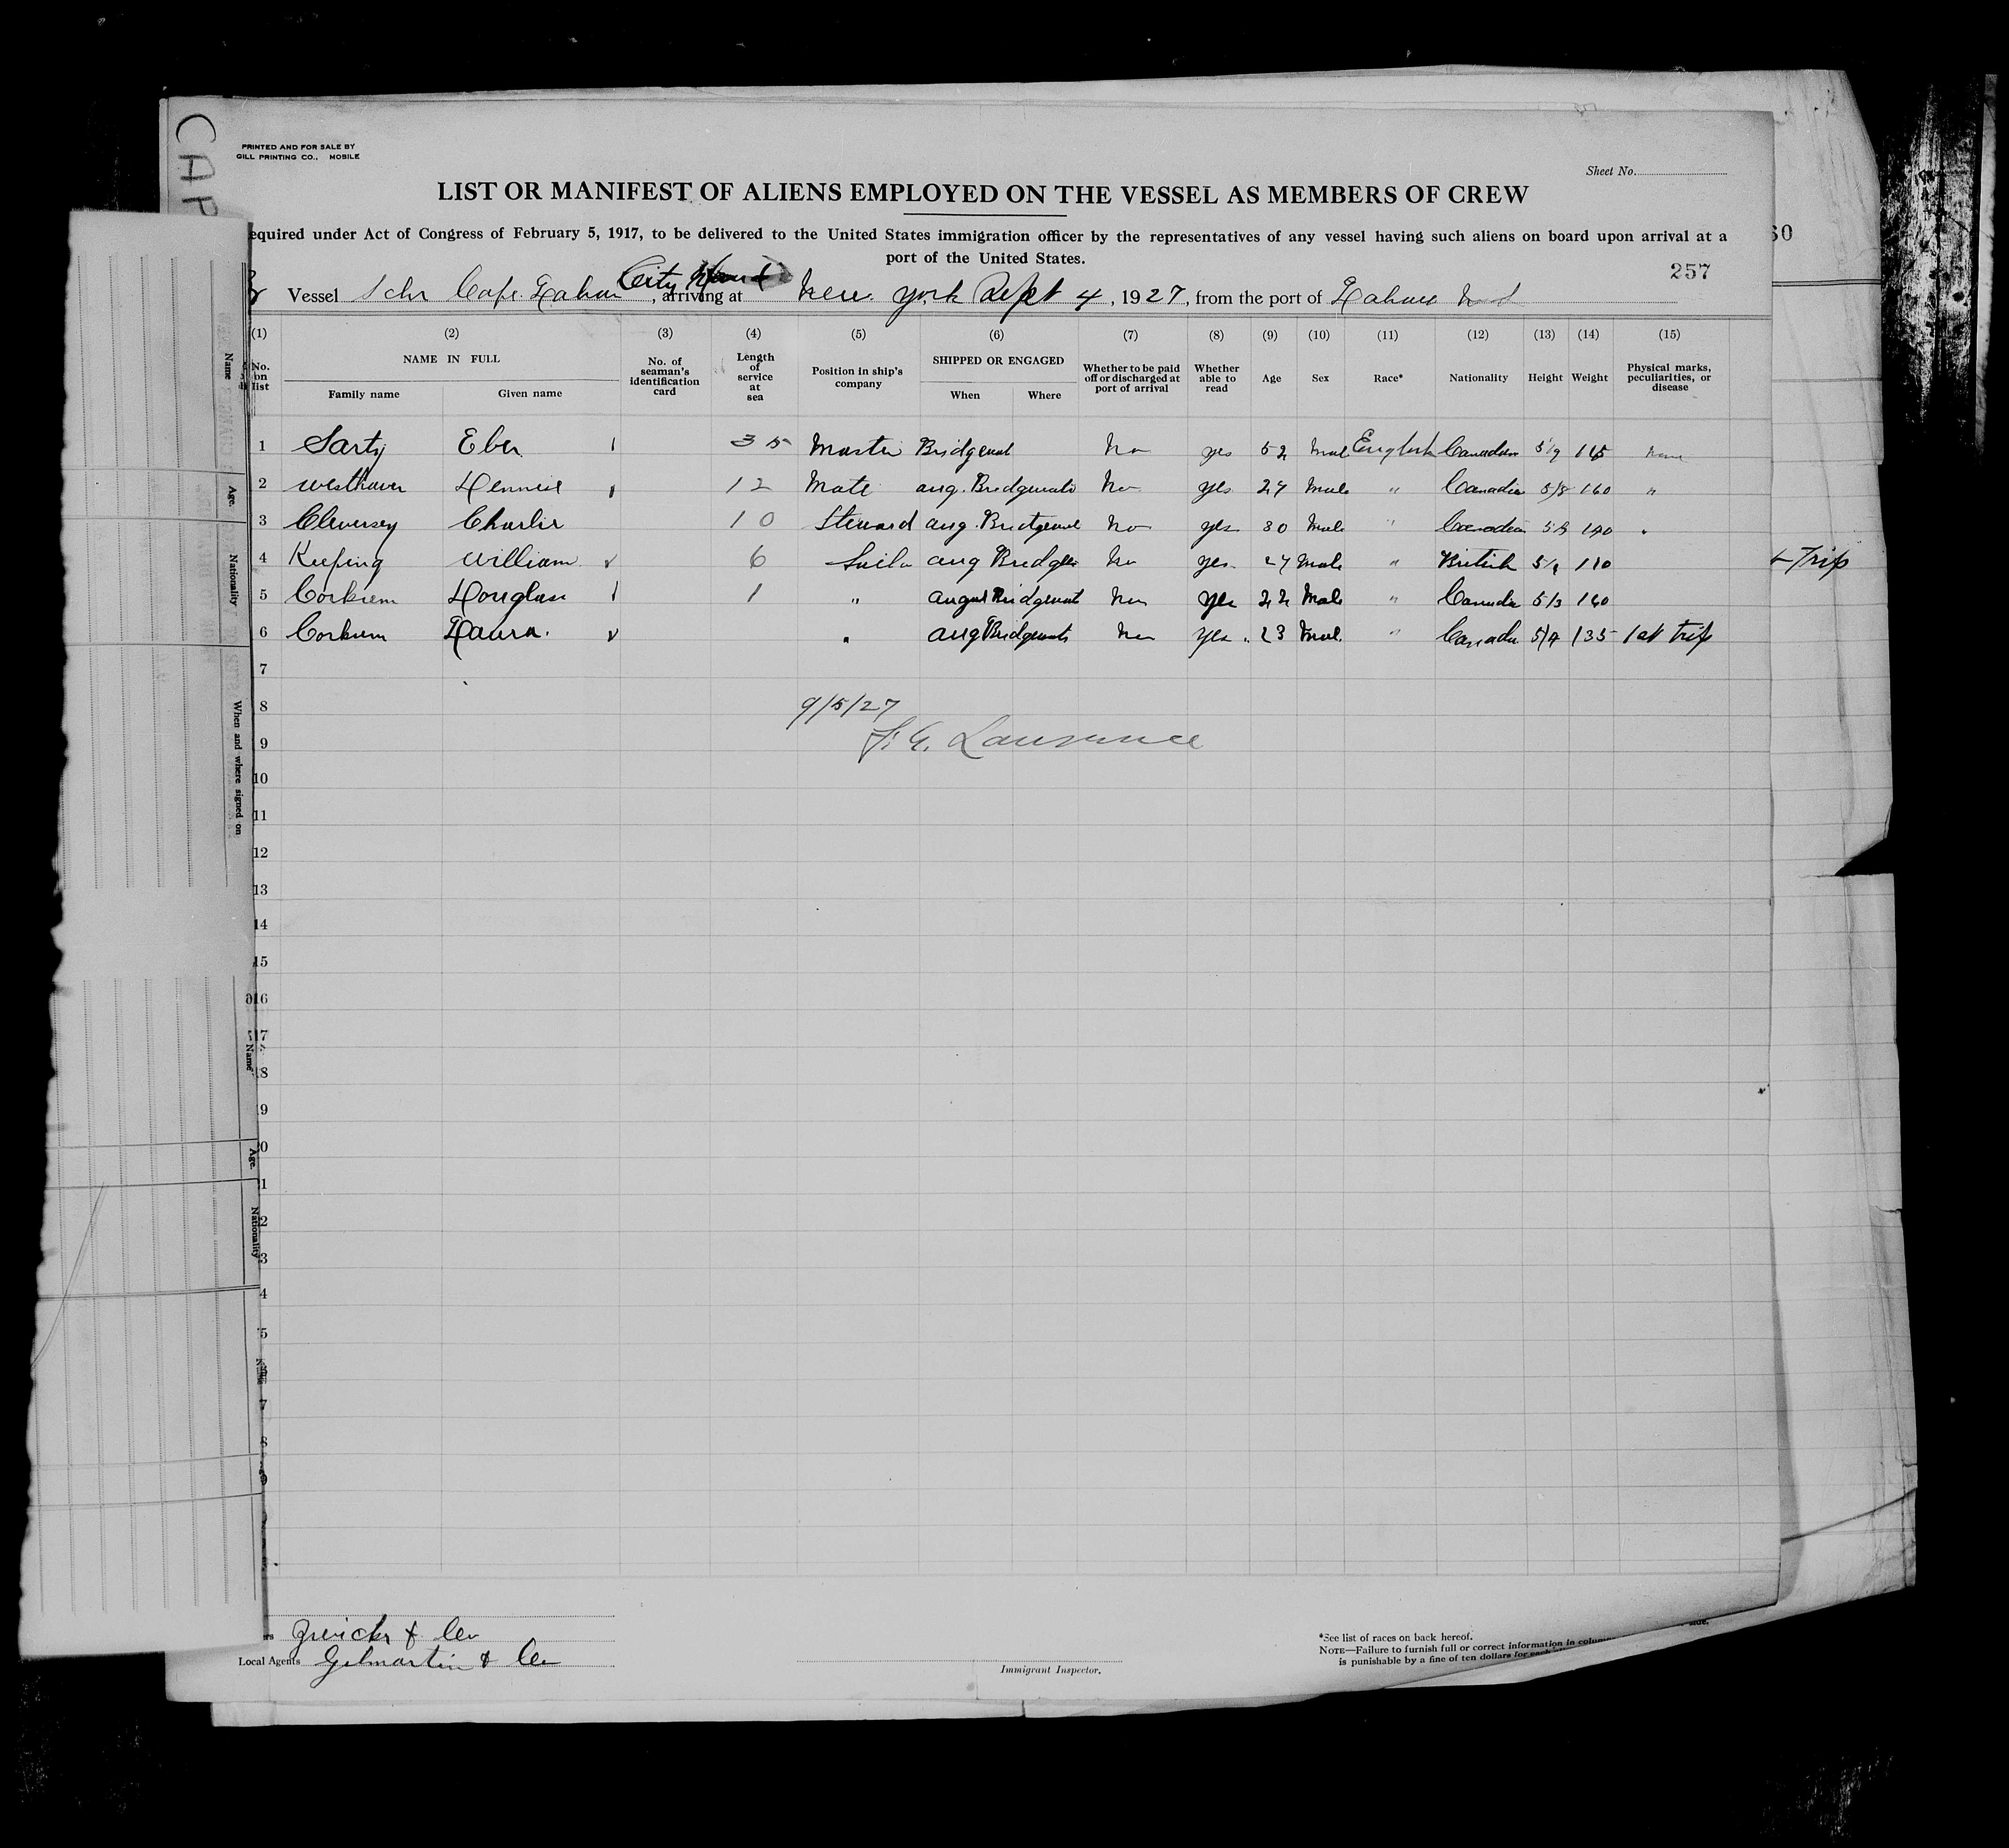 CAP
PRINTED AND FOR SALE BY
GILL PRINTING CO., MOBILE
Sheet No.
LIST OR MANIFEST OF ALIENS EMPLOYED ON THE VESSEL AS MEMBERS OF CREW
equired under Act of Congress of February 5, 1917, to be delivered to the United States immigration officer by the representatives of any vessel having such aliens on board upon arrival at a
port of the United States.
60
257
City
Vessel Schr Cape Lahave, arriving at New York Sept 4, 1927, from the port of Lahave
(1) (2) (3) (4) (5) (6) (7) (8) (9) (10) (11) (12) (13) (14) (15)
No. on list NAME IN FULL Family name Given name No. of seaman's identification card Length of service at sea Position in ship's company SHIPPED OR ENGAGED When Where Whether to be paid off or discharged at port of arrival Whether able to read Age Sex Race* Nationality Height Weight Physical marks, peculiarities, or disease
1 Sarty Eber 35 Master Bridgewat No yes 52 Mal English Canadian 5/9 165 none
2 Westhaver Dennis 12 Mate aug. Bridgewate No yes 27 Male " Canadia 5/8 160 "
3 Cleversey Charlie 10 Steward aug. Bridgewat No yes 30 Male " Canadian 190
4 Keeping William 6 Sailor aug Bridgew No yes 27 Male " British 170 Trip
5 Corkum Douglas 1 " august Bridgewat No yes 22 Male " Canada 5/3 160
6 Corkum " aug Bridgewate No yes 23 Mal " Canada 135 1st trip
7
8
9/5/27
9
Lawrence
10
11
12
13
14
15
16
17
18
Name
Age.
Nationality
When and where signed on
Name
Age.
Nationality
Zwicker & Co
Local Agents Gilmartin & Co
Immigrant Inspector.
*See list of races on back hereof.
NOTE—Failure to furnish full or correct information in
is punishable by a fine of ten dollars for each